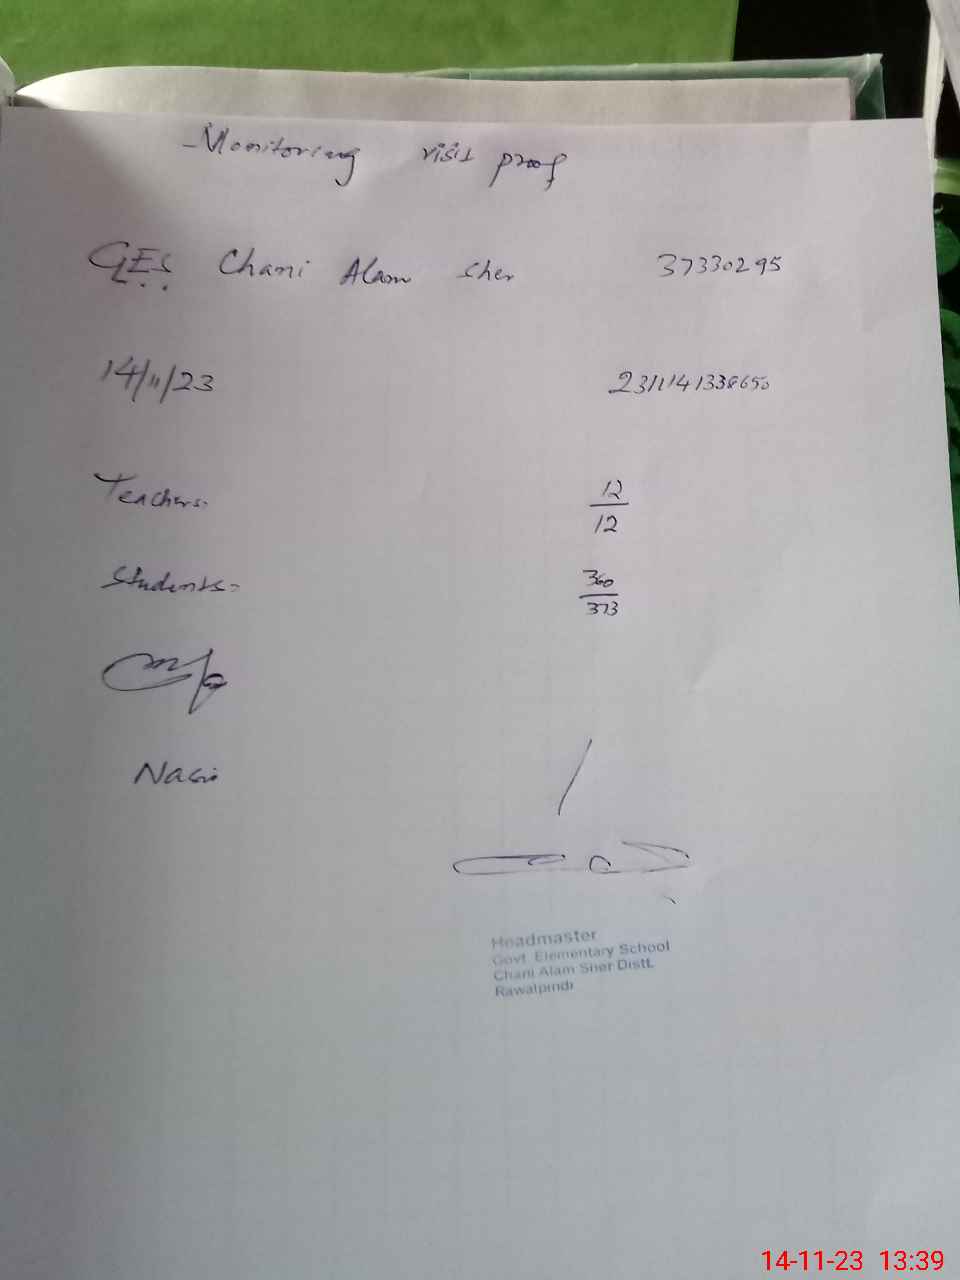 Monitoring visit proof
GES Chani Alam Sher 37330295
14/11/23 2311141338650
Teachers. 12/12
Students 360/373
Headmaster
Govt. Elementary School
Chani Alam Sher Distt.
Rawalpindi
14-11-23 13:39